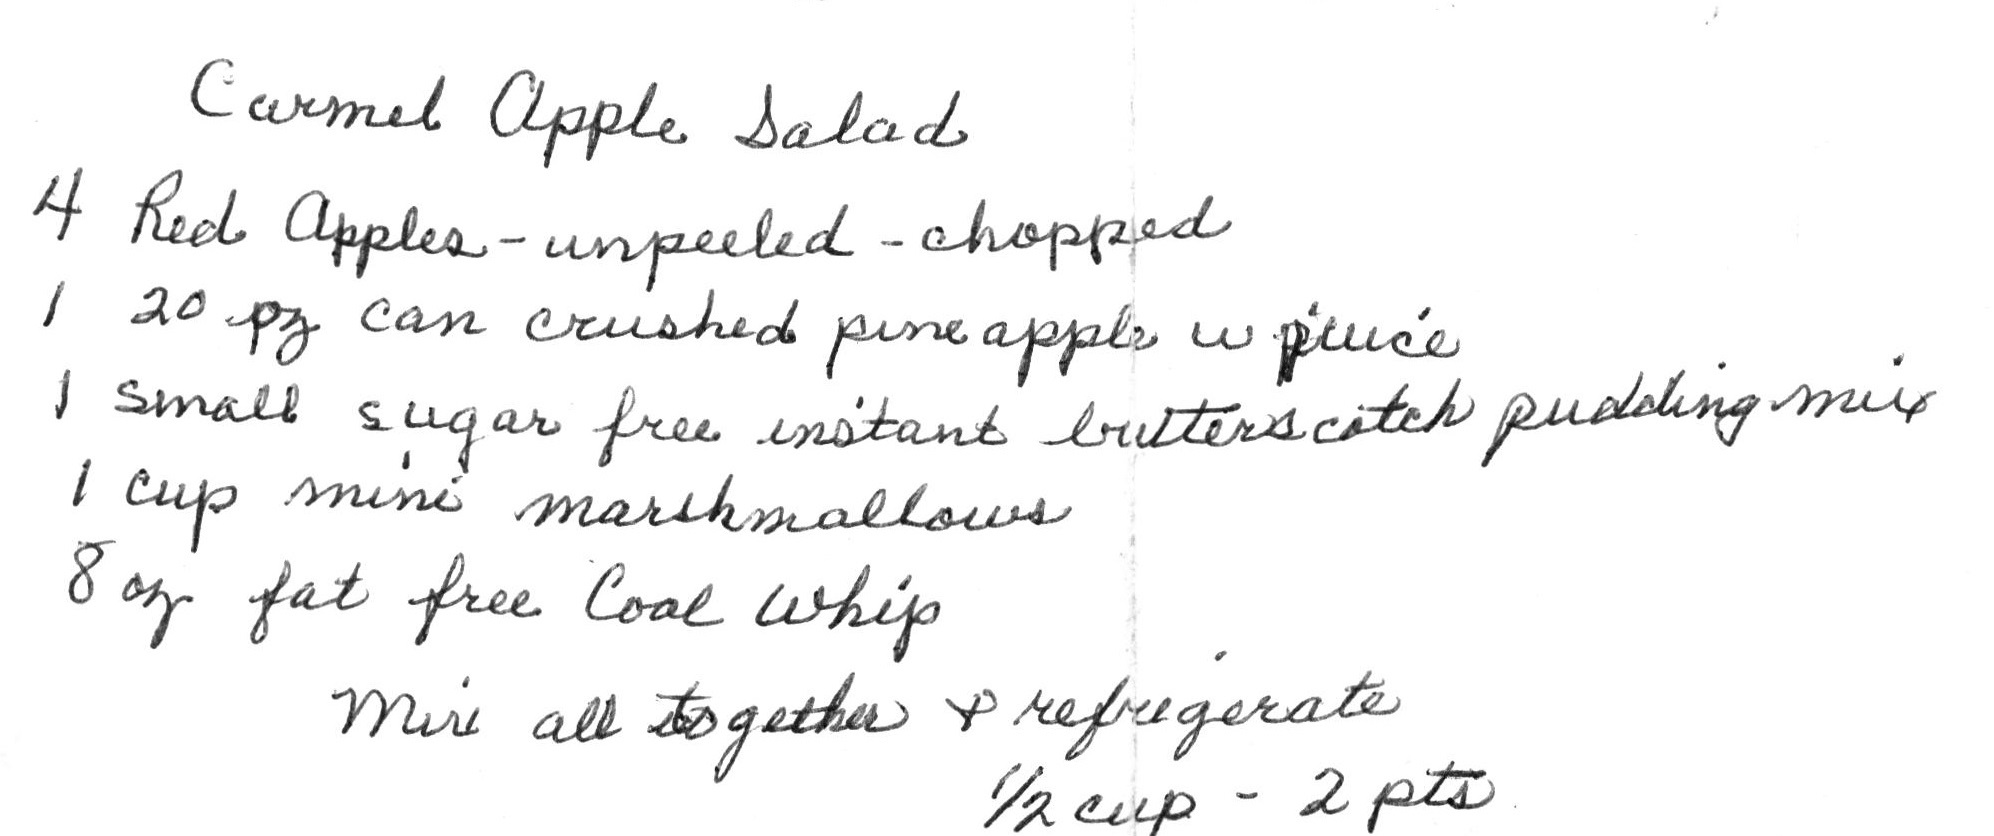 Carmel Apple Salad
4 Red Apples - unpeeled - chopped
1 20 oz can crushed pineapple w juice
1 small sugar free instant butterscotch pudding mix
1 cup mini marshmallows
8 oz fat free Cool Whip
Mix all together & refrigerate
1/2 cup - 2 pts